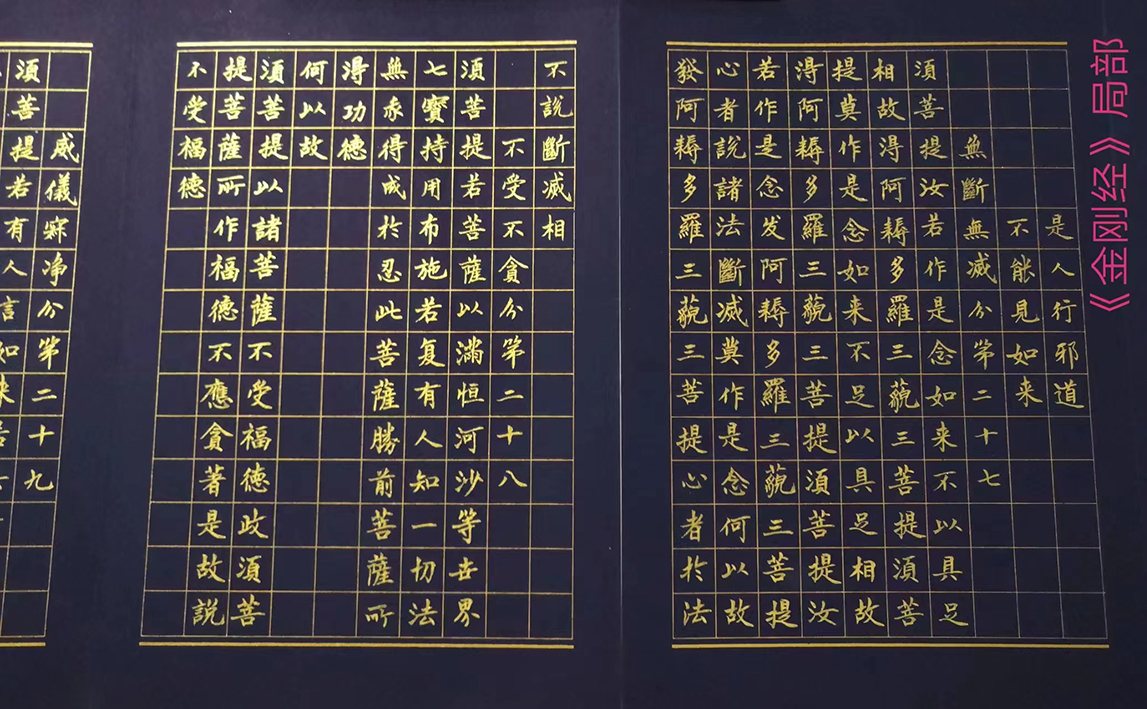 《金刚经》局部
是人行邪道
不能見如来
無斷無滅分第二十七
須菩提汝若作是念如来不以具足
相故淂阿耨多羅三藐三菩提須菩
提莫作是念如来不足以具足相故
淂阿耨多羅三藐三菩提須菩提汝
若作是念发阿耨多羅三藐三菩提
心者說諸法斷滅莫作是念何以故
發阿耨多羅三藐三菩提心者於法
不說斷滅相
不受不貪分第二十八
須菩提若菩薩以滿恒河沙等世界
七寶持用布施若复有人知一切法
無我得成於忍此菩薩勝前菩薩所
淂功德
何以故
須菩提以諸菩薩不受福德政須菩
提菩薩所作福德不應貪著是故說
不受福德
威儀寂净分第二十九
須菩提若有人言如来